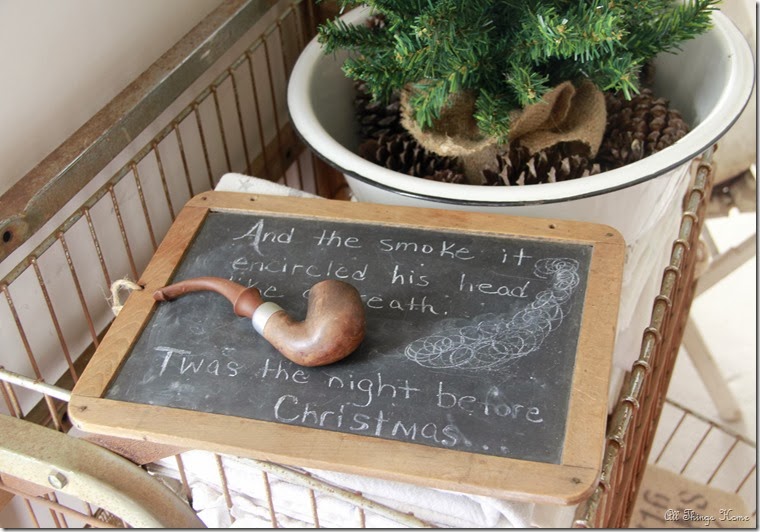 And the smoke it
encircled his head
like a wreath.
Twas the night before
Christmas...
All Things Home